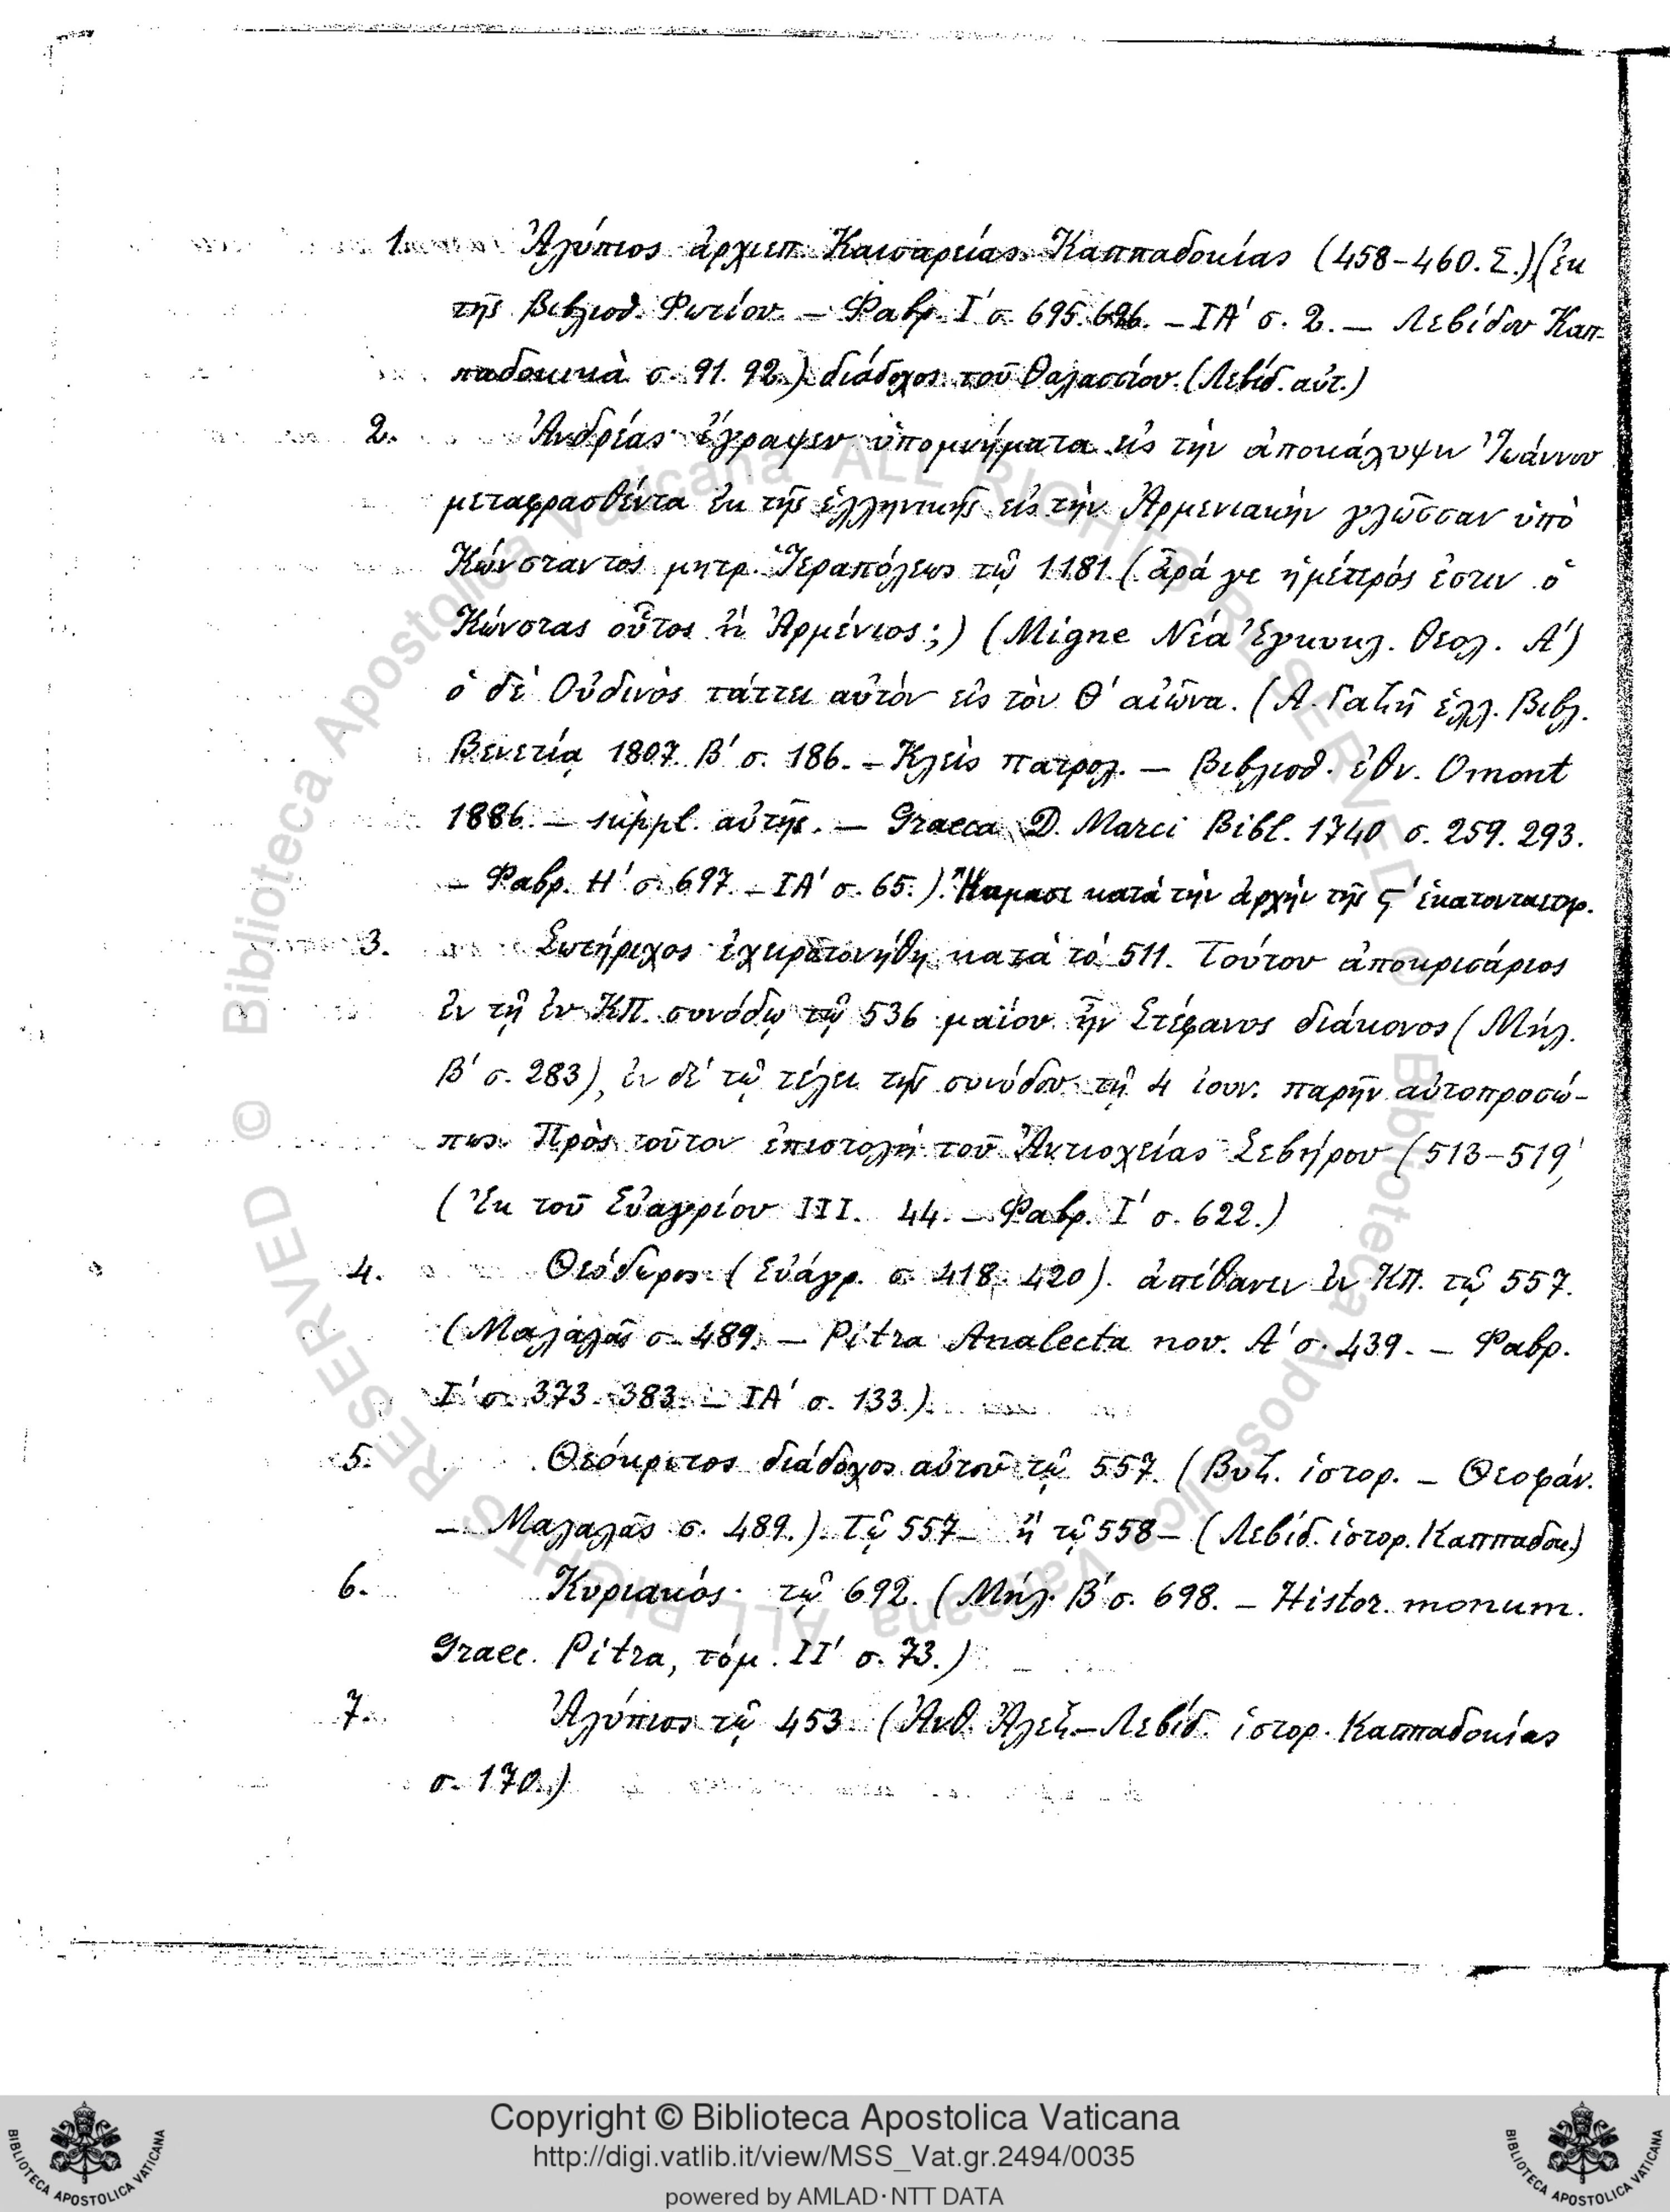 1. Ἀλύπιος ἀρχιεπ. Καισαρείας Καππαδοκίας (458-460. Σ.) (ἐκ
τῆς Βιβλιοθ. Φωτίου. — Φαβρ. Ι΄ σ. 695. 696. — ΙΑ΄ σ. 2. — Λεβίδου Καπ-
παδοκικὰ σ. 91. 92.) διάδοχος τοῦ Θαλασσίου. (Λεβίδ. αὐτ.)
2. Ἀνδρέας ἔγραψεν ὑπομνήματα εἰς τὴν ἀποκάλυψιν Ἰωάννου
μεταφρασθέντα ἐκ τῆς ἑλληνικῆς εἰς τὴν Ἀρμενιακὴν γλῶσσαν ὑπὸ
Κώνσταντος μητρ. Ἱεραπόλεως τῷ 1181. (ἆρά γε ἡμέτερός ἐστιν ὁ
Κώνστας οὗτος ἢ Ἀρμένιος;) (Migne Νέα Ἐγκυκλ. Θεολ. Α΄)
ὁ δὲ Οὐδινὸς τάττει αὐτὸν εἰς τὸν Θ΄ αἰῶνα. (Α. Γαζῆ ἑλλ. Βιβλ.
Βενετίᾳ 1807. Β΄ σ. 186. — Κλεὶς πατρολ. — Βιβλιοθ. ἐθν. Omont
1886. — suppl. αὐτῆς. — Graeca D. Marci Bibl. 1740 σ. 259. 293.
— Φαβρ. Η΄ σ. 697. — ΙΑ΄ σ. 65.). Ἤκμασε κατὰ τὴν ἀρχὴν τῆς ς΄ ἑκατονταετηρ.
3. Σωτήριχος ἐχειροτονήθη κατὰ τὸ 511. Τούτου ἀποκρισάριος
ἐν τῇ ἐν ΚΠ. συνόδῳ τῷ 536 μαΐου ἦν Στέφανος διάκονος (Μήλ.
Β΄ σ. 283), ἐν δὲ τῷ τέλει τῆς συνόδου τῇ 4 ἰουν. παρῆν αὐτοπροσώ-
πως. Πρὸς τοῦτον ἐπιστολὴ τοῦ Ἀντιοχείας Σεβήρου (513-519,
(Ἐκ τοῦ Εὐαγρίου III. 44. — Φαβρ. Ι΄ σ. 622.)
4. Θεόδωρος (Εὐάγρ. σ. 418. 420). ἀπέθανεν ἐν ΚΠ. τῷ 557.
(Μαλαλᾶς σ. 489. — Pitra Analecta nov. Α΄ σ. 439. — Φαβρ.
Ι΄ σ. 373. 383. — ΙΑ΄ σ. 133.)
5. Θεόκριτος διάδοχος αὐτοῦ τῷ 557. (Βυζ. ἱστορ. — Θεοφάν.
— Μαλαλᾶς σ. 489.). Τῷ 557 — ἢ τῷ 558 — (Λεβίδ. ἱστορ. Καππαδοκ.)
6. Κυριακός τῷ 692. (Μήλ. Β΄ σ. 698. — Histor. monum.
Graec. Pitra, τόμ. II΄ σ. 73.)
7. Ἀλύπιος τῷ 453. (Ἀνθ. Ἀλεξ — Λεβίδ. ἱστορ. Καππαδοκίας
σ. 170.)
Copyright © Biblioteca Apostolica Vaticana
http://digi.vatlib.it/view/MSS_Vat.gr.2494/0035
powered by AMLAD·NTT DATA